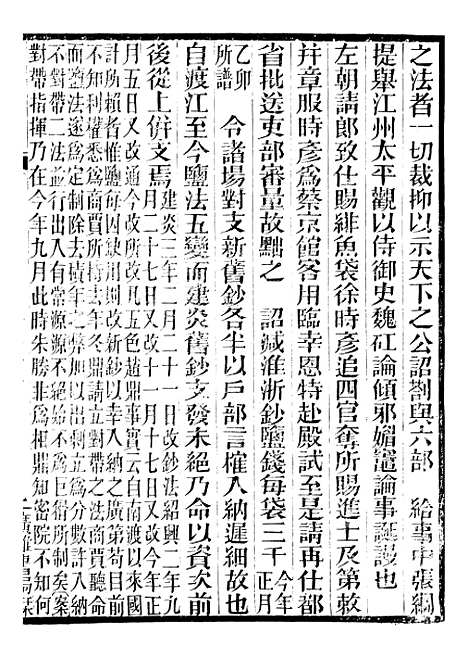 之法者一切裁抑以示天下之公詔劄與六部　給事中張綱
提舉江州太平觀以侍御史魏矼論傾邪媚竈論事誕謾也
左朝請郎致仕賜緋魚袋徐時彥追四官奪所賜進士及第敕
并章服時彥爲蔡京館客用臨幸恩特赴殿試至是請再仕都
省批送吏部審量故黜之　詔減淮浙鈔鹽錢每袋三千今年正月
乙卯所譜　令諸場對支新舊鈔各半以戶部言榷入納遲細故也
自渡江至今鹽法五變而建炎舊鈔支發未絕乃命以資次前
後從上併支焉建炎三年二月二十一日改鈔法紹興二年九
月二十七日又改十一月十七日又改今年正
月五日又改通今所改凡五色趙鼎事實云自南渡以來國
計所賴者惟鹽每因缺用則改新鈔以幸入納之廣第苟目前
不知利權悉爲商賈所持去年冬鼎請立對帶之法商賈聽命
而鹽法遂爲定制除去積年之弊加以出剩立爲分數許其
不對帶二法並行出入有常源源不絕爲巨術所制矣案
對帶指揮乃在今年九月此時朱勝非爲相鼎知密院不知何